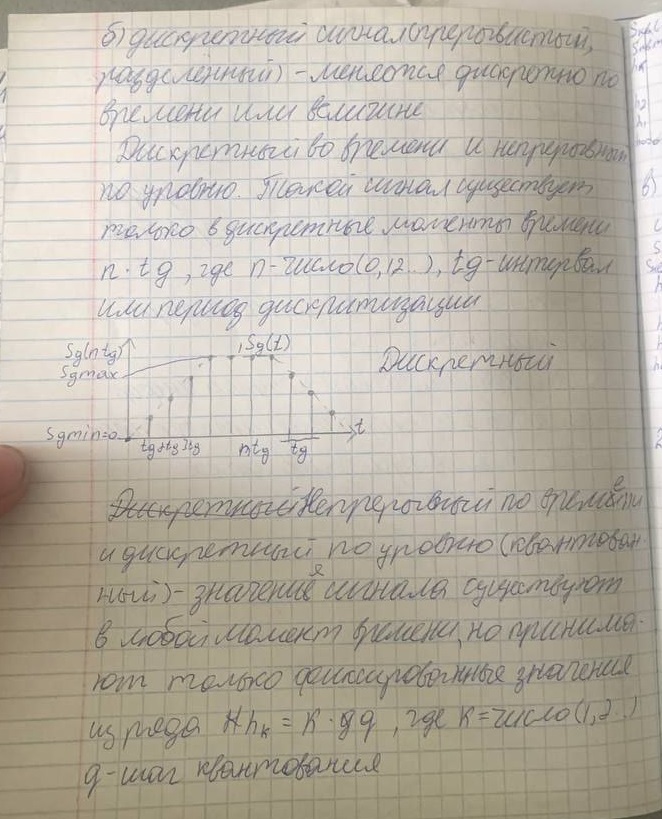 б) дискретный сигнал (прерывистый,
разделённый) - меняется дискретно по
времени или величине
Дискретный во времени и непрерывный
по уровню. Такой сигнал существует
только в дискретные моменты времени
n·tg, где n-число (0,12..), tg-интервал
или период дискритизации
Sg(ntg)
Sg(t)
Sgmax
Дискретный
Sgmin=0
tg 2tg 3tg
ntg
tg
t
Дискретный Непрерывный по времени
и дискретный по уровню (квантован-
ный) - значения сигнала существуют
в любой момент времени, но принима-
ют только фиксированные значения
из ряда hк = К·q, где К=число (1,2..)
q-шаг квантования